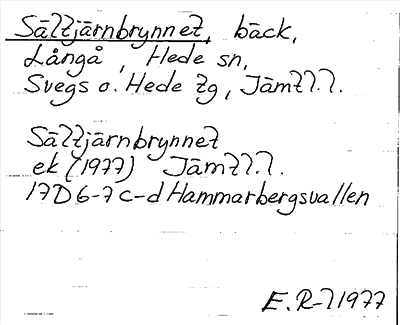 Sältjärnbrynnet, bäck,
Långå, Hede sn,
Svegs o. Hede tg, Jämtl.l.
Sältjärnbrynnet
ek (1977) Jämtl.l.
17D 6-7 c-d Hammarbergsvallen
E. R-l 1977